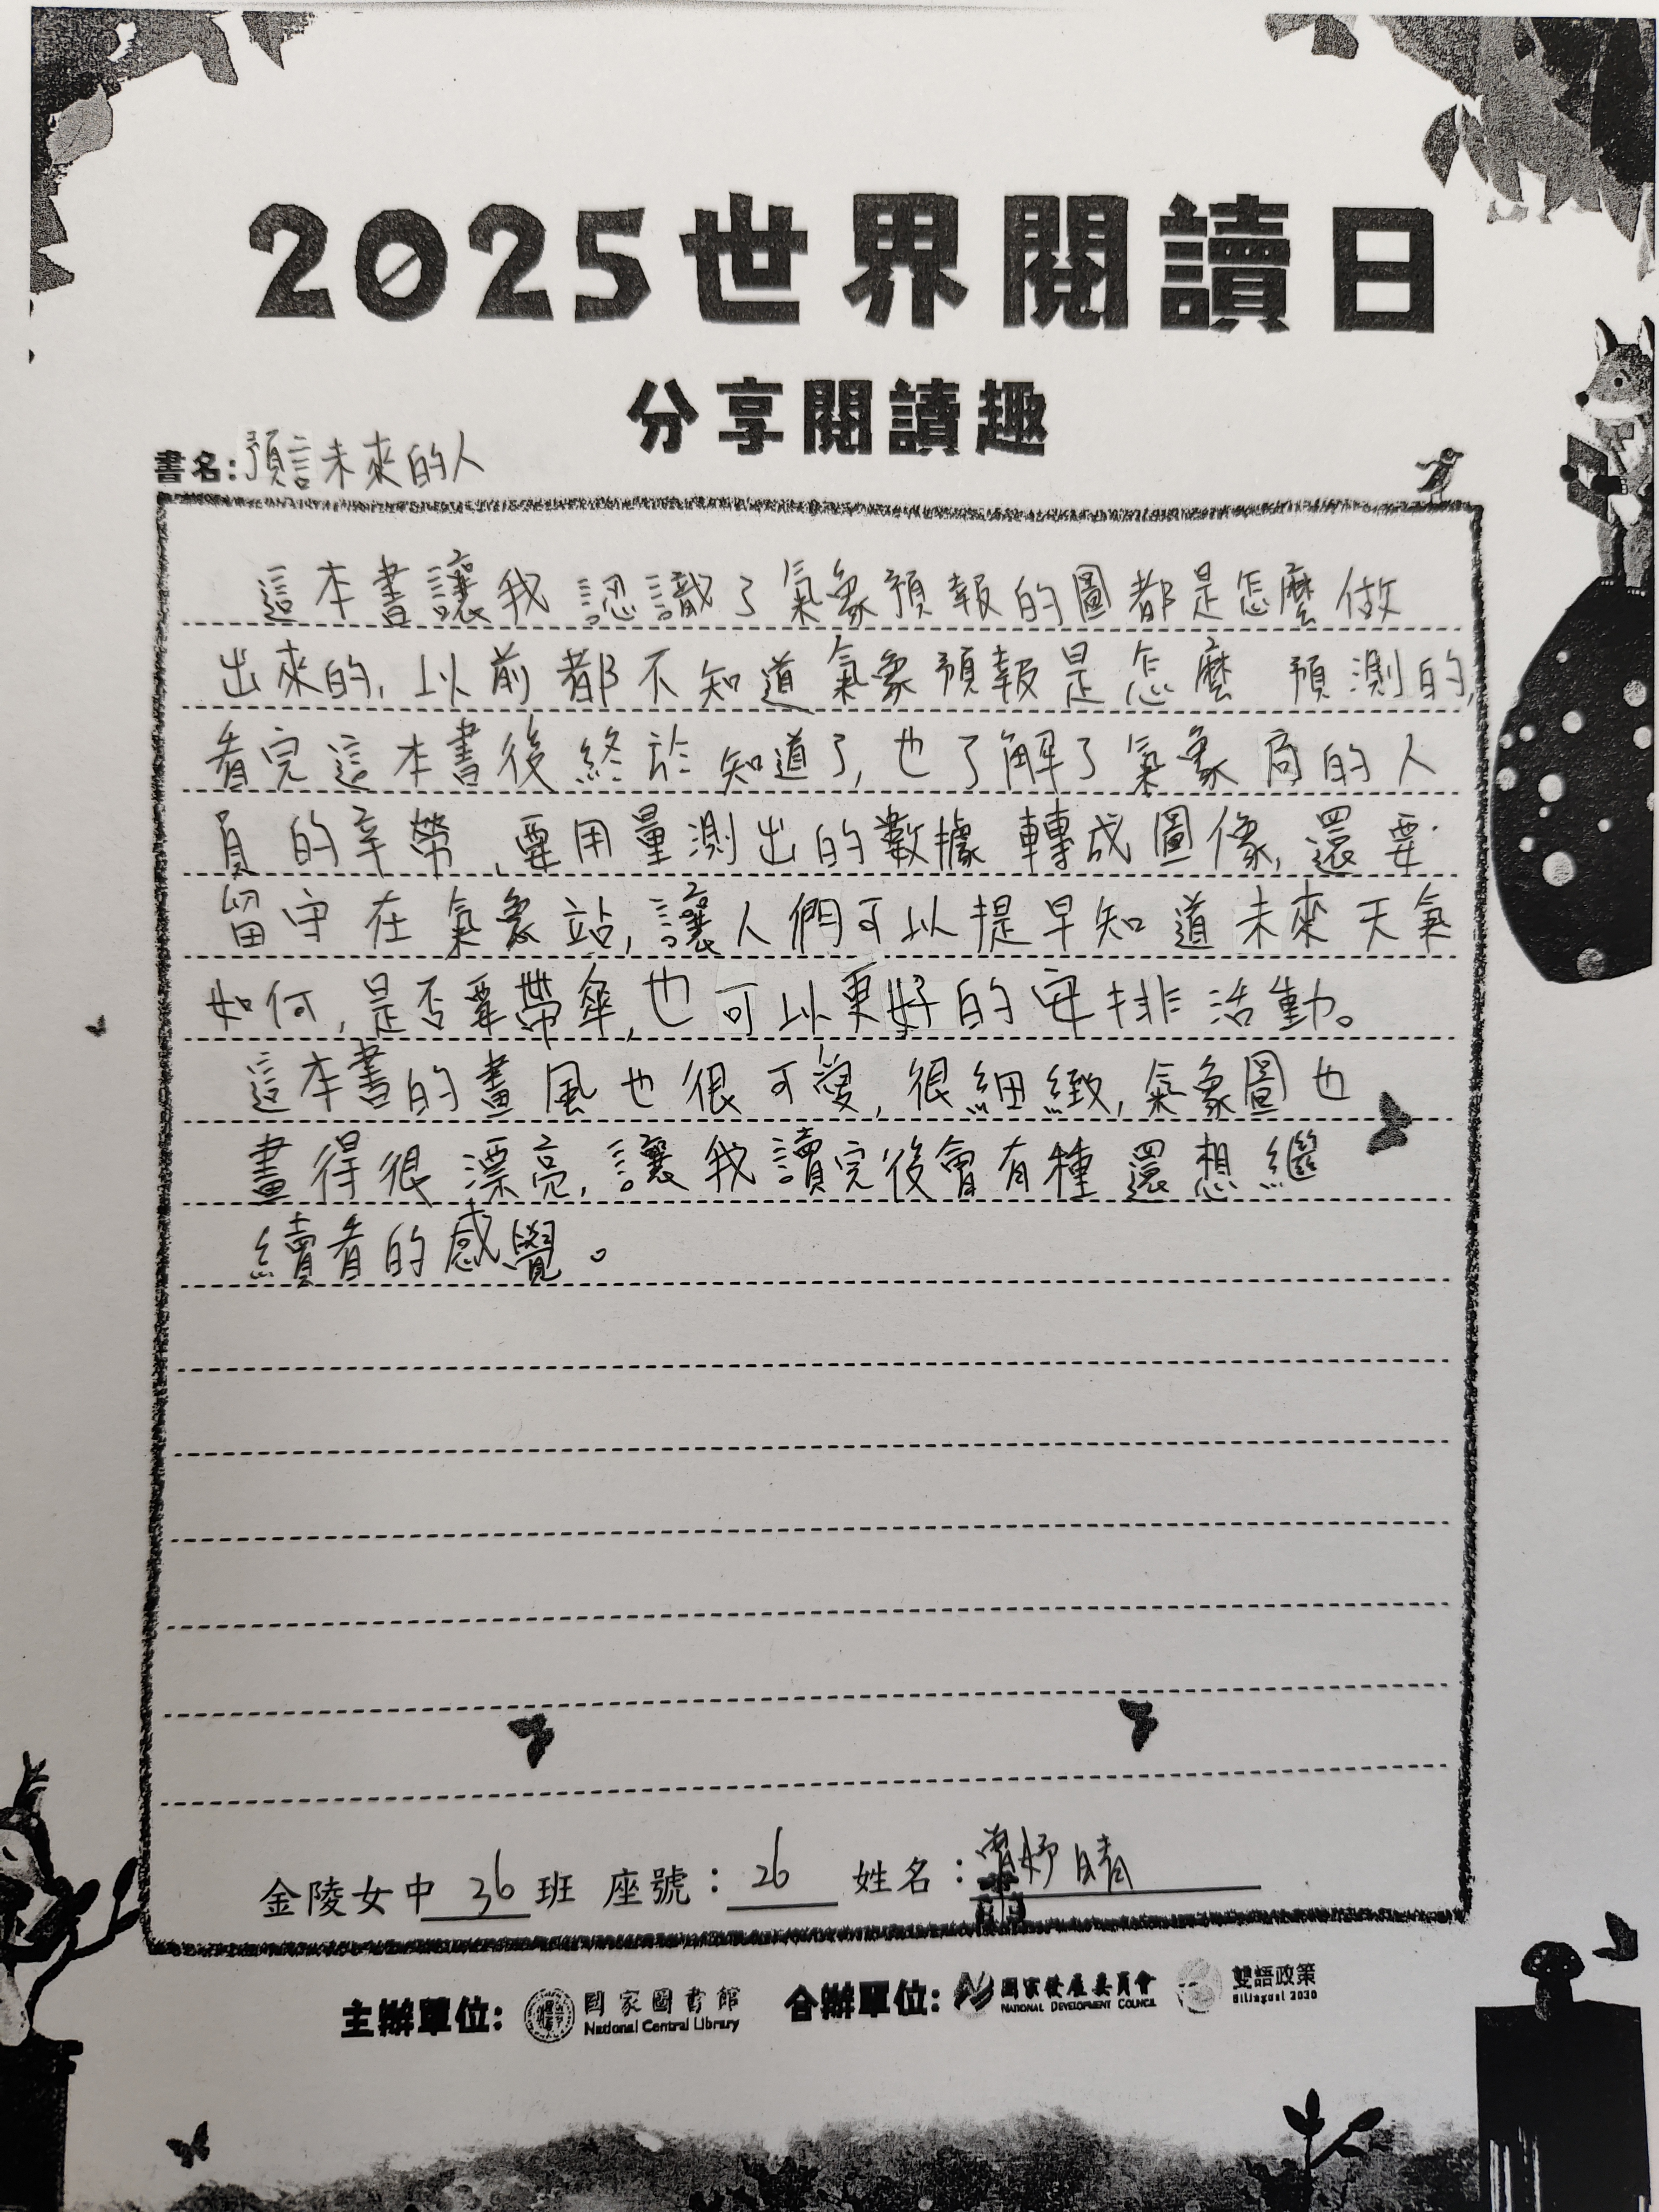 2025世界閱讀日
分享閱讀趣
書名:預言未來的人
這本書讓我認識了氣象預報的圖都是怎麼做
出來的,以前都不知道氣象預報是怎麼預測的,
看完這本書後終於知道了,也了解了氣象局的人
員的辛勞,要用量測出的數據轉成圖像,還要
留守在氣象站,讓人們可以提早知道未來天氣
如何,是否要帶傘,也可以更好的安排活動。
這本書的畫風也很可愛,很細緻,氣象圖也
畫得很漂亮,讓我讀完後會有種還想繼
續看的感覺。
金陵女中 36 班 座號:26 姓名:妤晴
主辦單位: 國家圖書館 合辦單位: 國家發展委員會 雙語政策
National Central Library NATIONAL DEVELOPMENT COUNCIL Bilingual 2030